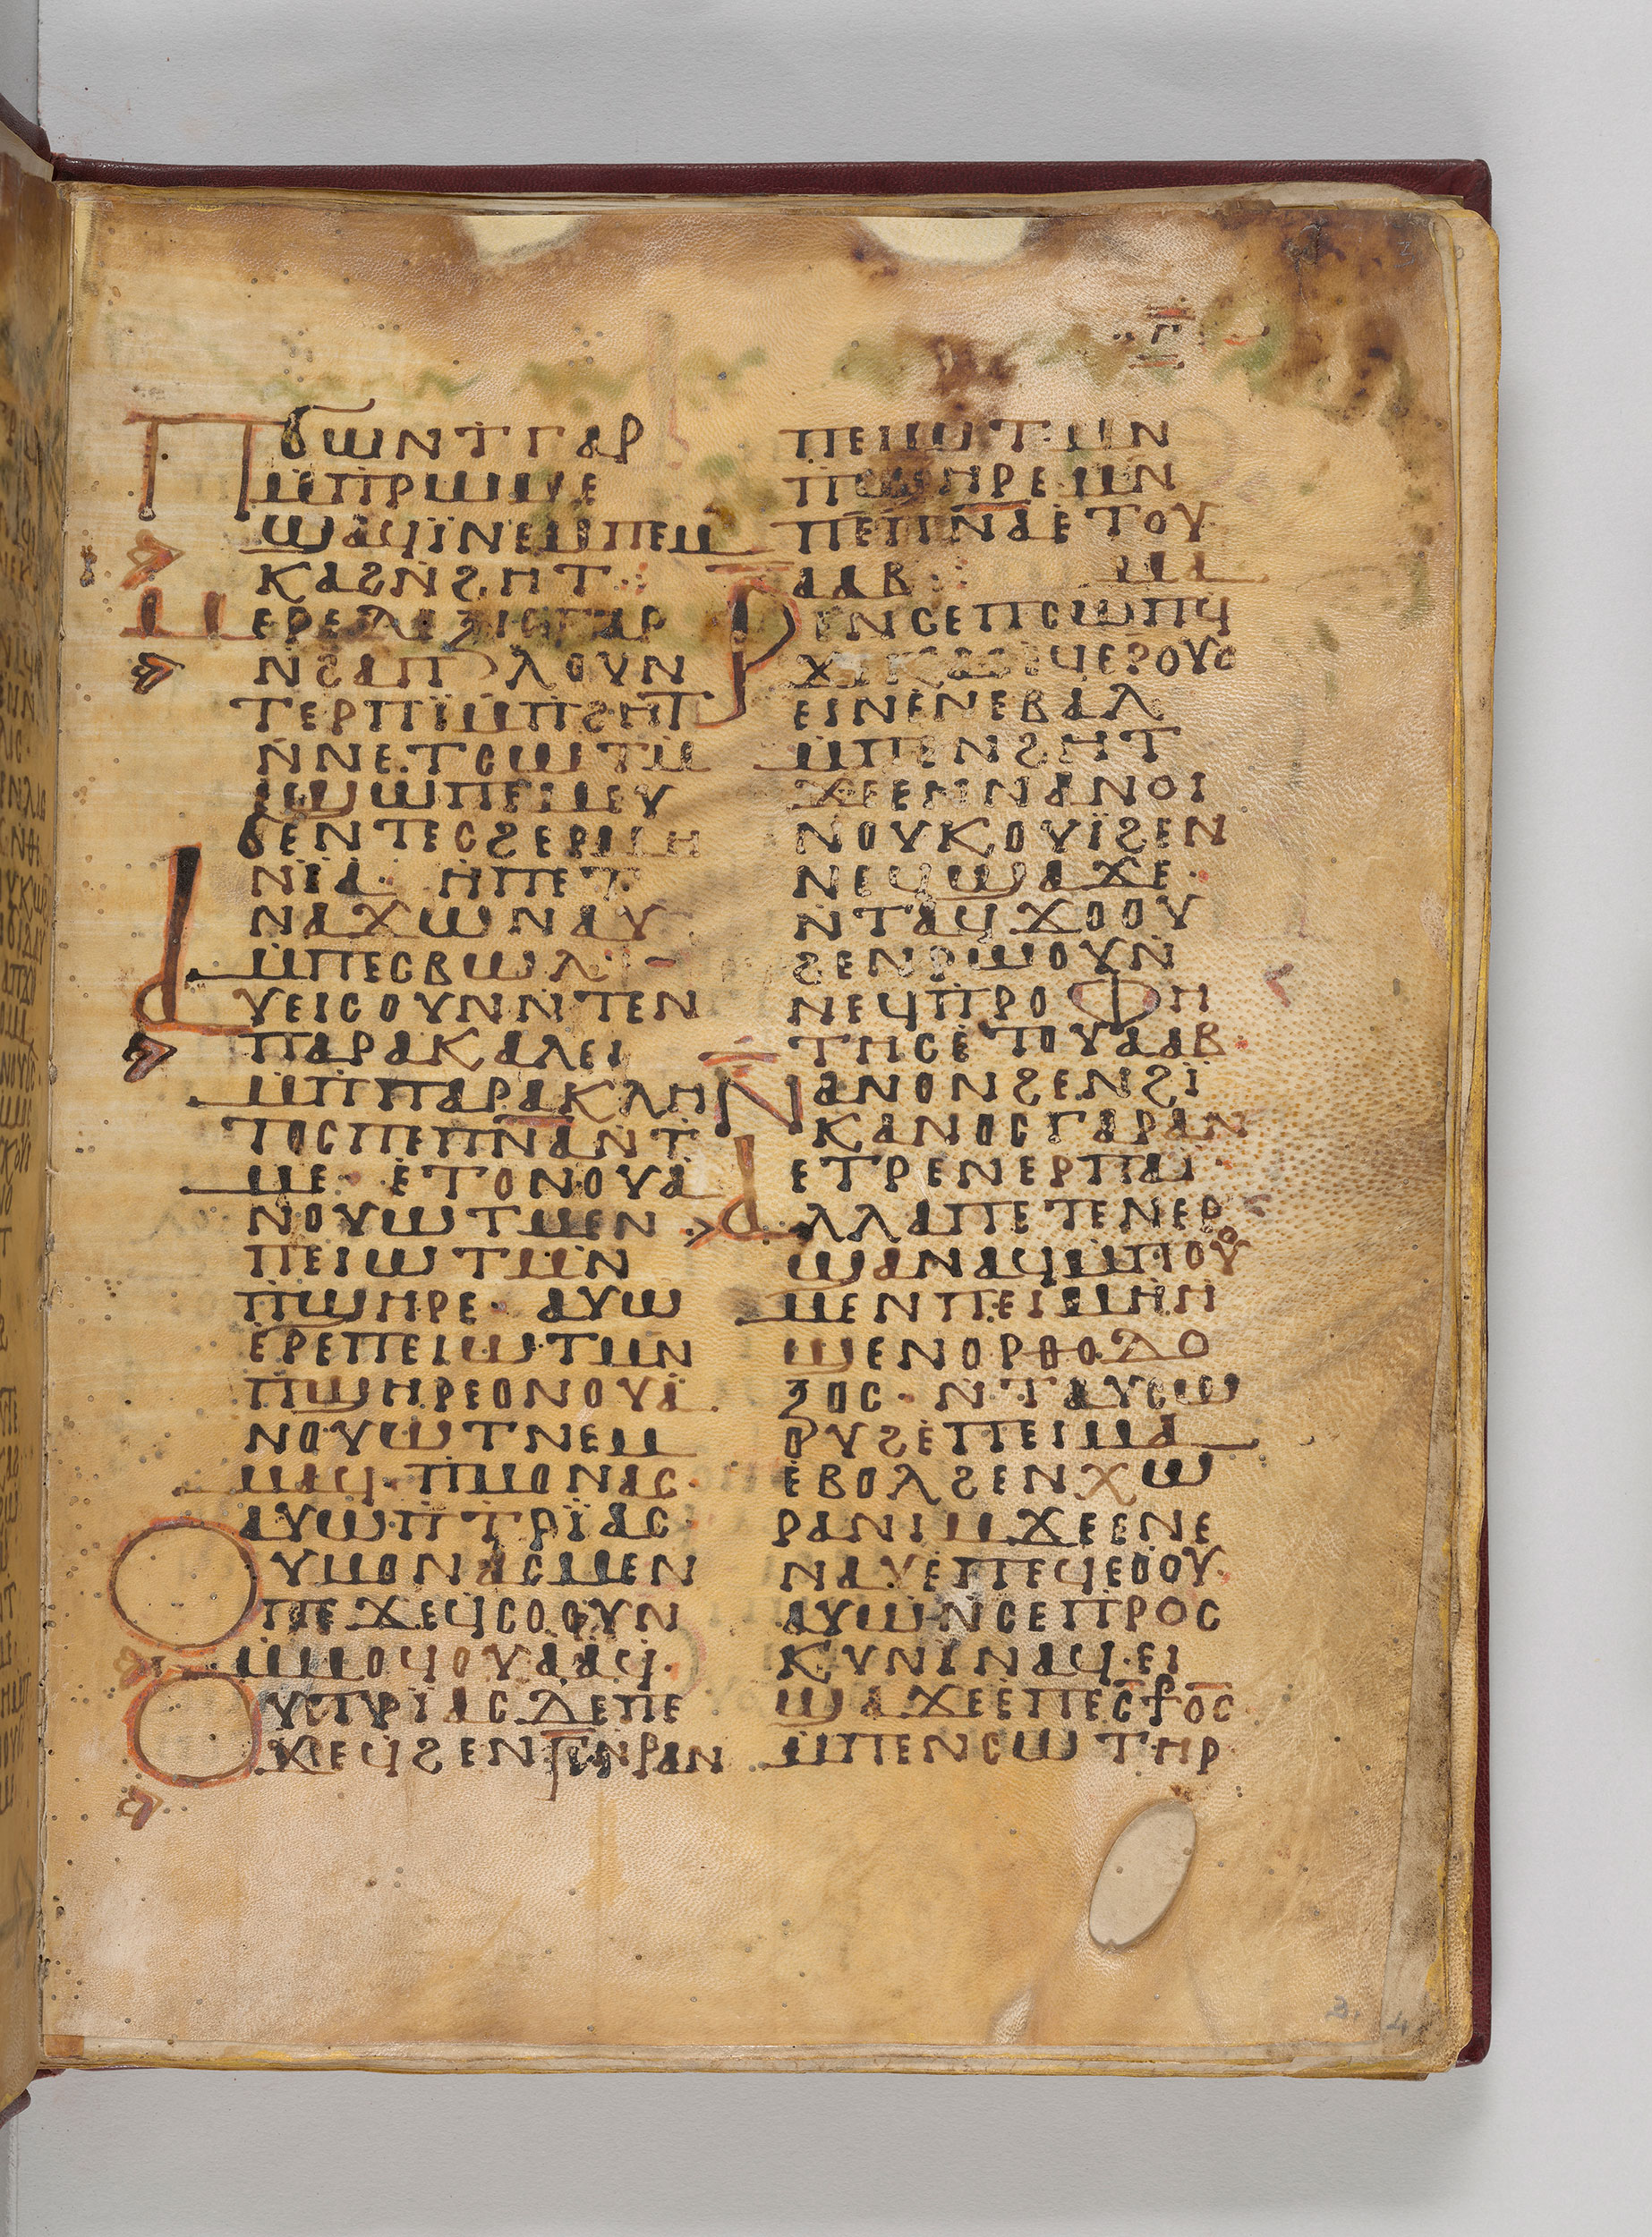 ⲅ̅
ⲡϭⲱⲛⲧ ⲅⲁⲣ
ⲙ̇ⲡⲣⲱⲙⲉ
ϣⲁϥⲓ̈ⲛⲉⲙⲡⲉⲙ
ⲕⲁϩⲛ̇ϩⲏⲧ·
ⲙⲉⲣⲉ ⲅⲁⲣ
ⲛϩⲁⲡⲗⲟⲩⲛ
ⲧⲉⲣⲡⲓ̈ⲙ̇ⲡ̇ϩⲏⲧ
ⲛ̇ⲛⲉⲧⲥⲱⲧⲙ̇
ϣⲱⲡⲉⲓⲙⲉⲩ
ϭⲉⲛⲧⲉⲥϩⲉⲣⲙⲏ
ⲛⲓ̈ⲁ· ⲏ̇ⲡⲉⲧ
ⲛⲁϫⲱⲛⲁⲩ
ⲙ̇ⲡⲉⲥⲃⲱⲗ·
ⲁⲩⲉⲓⲥⲟⲩⲛⲛ̇ⲧⲉⲛ
ⲡⲁⲣⲁⲕⲁⲗⲉⲓ
ⲙ̇ⲡ̇ⲡⲁⲣⲁⲕⲗⲏ
ⲧⲟⲥⲡⲉⲡ̅ⲛ̅ⲁ̅ⲛ̇ⲧ̇
ⲙⲉ· ⲉ̇ⲧⲟⲛⲟⲩⲁ
ⲛⲟⲩⲱⲧⲙⲉⲛ
ⲡⲉⲓⲱⲧⲙ̇ⲛ
ⲡ̇ϣⲏⲣⲉ· ⲁⲩⲱ
ⲉ̇ⲣⲉⲡⲉⲓⲱⲧⲙ̇ⲛ
ⲡ̇ϣⲏⲣⲉⲟⲛⲟⲩⲁ
ⲛⲟⲩⲱⲧⲛⲉⲙ
ⲙⲁϥ· ⲡ̇ⲙⲟⲛⲁⲥ·
ⲁⲩⲱⲧ̇ⲧⲣⲓ̈ⲁⲥ·
ⲟⲩⲙⲟⲛⲁⲥⲙⲉⲛ
ⲡⲉϫⲉϥⲥⲟⲟⲩⲛ
ⲙ̇ⲙⲟϥⲟⲩⲁⲁϥ·
ⲟⲩⲧⲣⲓ̈ⲁⲥⲇⲉⲡⲉ
ϫⲉϥϩⲉⲛⲅ̅ⲛ̇ⲣⲁⲛ
ⲡⲉⲓⲱⲧ·ⲙ̇ⲛ
ⲡ̇ϣⲏⲣⲉ·ⲙ̇ⲛ
ⲡⲉⲡ̅ⲛ̅ⲁ̅ⲉ̇ⲧⲟⲩ
ⲁⲁⲃ· ⲙⲁ
ⲣⲉⲛⲥⲉⲡⲥⲱⲡϥ
ϫⲉⲣⲟⲩⲟ
ⲉⲓⲛⲉ̇ⲛⲉⲃⲁⲗ
ⲙ̇ⲡⲉⲛϩⲏⲧ
ϫⲉⲉⲛⲛⲁⲛⲟⲓ
ⲛⲟⲩⲕⲟⲩⲓ̈ϩⲉⲛ
ⲛⲉϥϣⲁϫⲉ·
ⲛⲧⲁϥϫⲟⲟⲩ
ϩⲉⲛⲣⲱⲟⲩⲛ̇
ⲛⲉϥⲡⲣⲟⲫⲏ
ⲧⲏⲥⲉ̇ⲧⲟⲩⲁⲁⲃ·
ⲛ̅ⲁⲛⲟⲛϩⲉⲛϩⲓ̈
ⲕⲁⲛⲟⲥⲅⲁⲣⲁⲛ
ⲉⲧⲣⲉⲛⲉⲣⲡⲁⲓ·
ⲁⲗⲗⲁⲡⲉⲧⲉⲛⲉⲣ
ϣⲁⲛⲁϥⲙ̇ⲡⲟⲟⲩ
ⲙⲉⲛⲡⲉⲓⲙⲏⲏ
ϣⲉⲛⲟⲣⲑⲟⲇⲟ
ⲝⲟⲥ· ⲛ̇ⲧⲁⲩⲥⲱ
ⲟⲩϩⲉ̇ⲡⲉⲓⲙⲁ
ⲉ̇ⲃⲟⲗϩⲉⲛⲭⲱ
ⲣⲁⲛⲓⲙϫⲉⲉⲛⲉ
ⲛⲁⲩⲉ̇ⲡⲉϥⲉⲟⲟⲩ·
ⲁⲩⲱⲛ̇ⲥⲉⲡⲣⲟⲥ
ⲕⲩⲛⲓⲛⲁϥ·ⲉⲓ
ϣⲁϫⲉⲉ̇ⲡⲉⲥ̅ⳁⲟ̅ⲥ̅
ⲙ̇ⲡⲉⲛⲥⲱⲧⲏⲣ